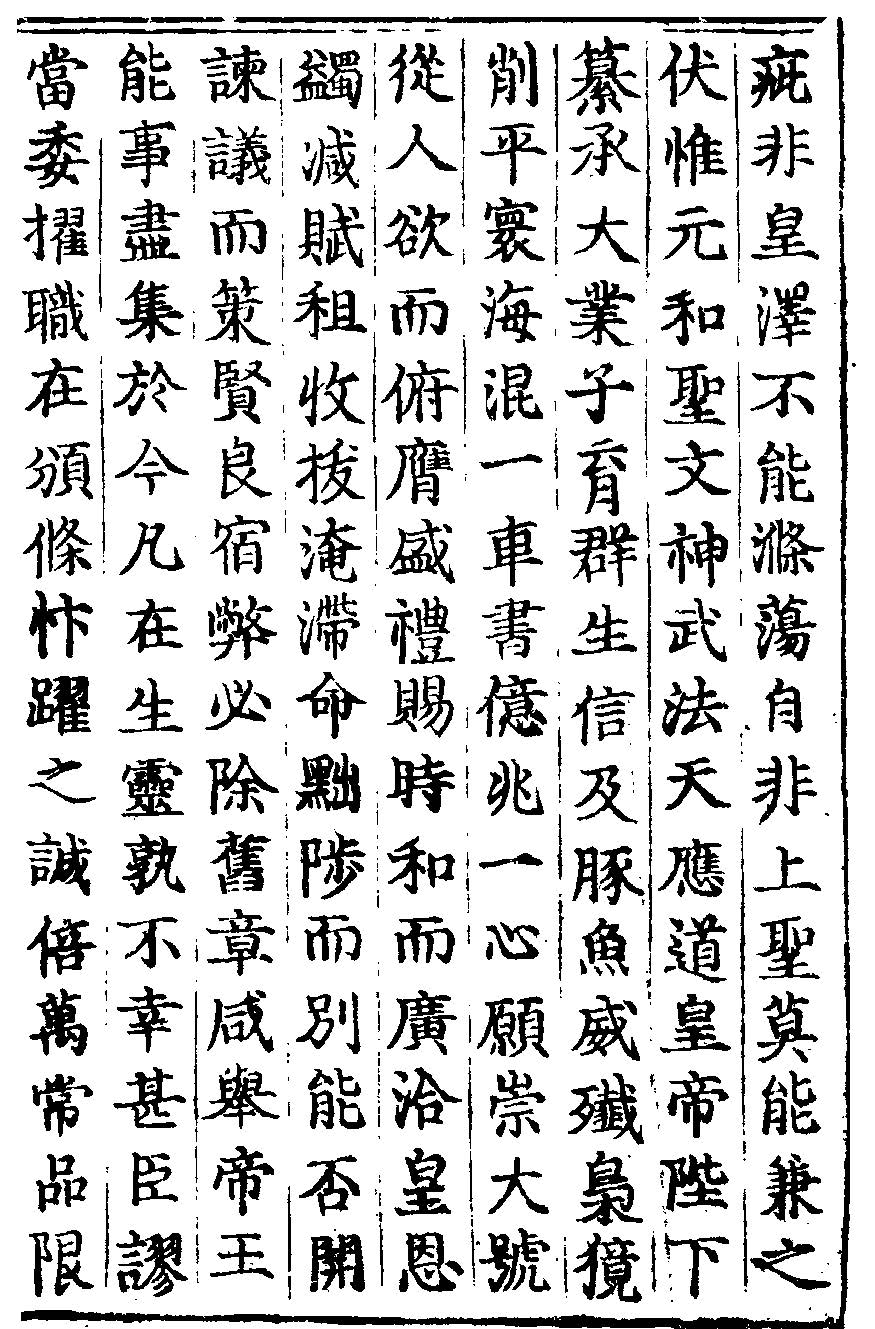 疵非皇澤不能滌蕩自非上聖莫能兼之
伏惟元和聖文神武法天應道皇帝陛下
纂承大業子育群生信及豚魚威殱梟獍
削平寰海混一車書億兆一心願崇大號
從人欲而俯膺盛禮賜時和而廣洽皇恩
蠲减賦租收拔淹滯命黜陟而別能否開
諫議而策賢良宿弊必除舊章咸舉帝王
能事盡集於今凡在生靈孰不幸甚臣謬
當委擢職在頒條忭躍之誠倍萬常品限